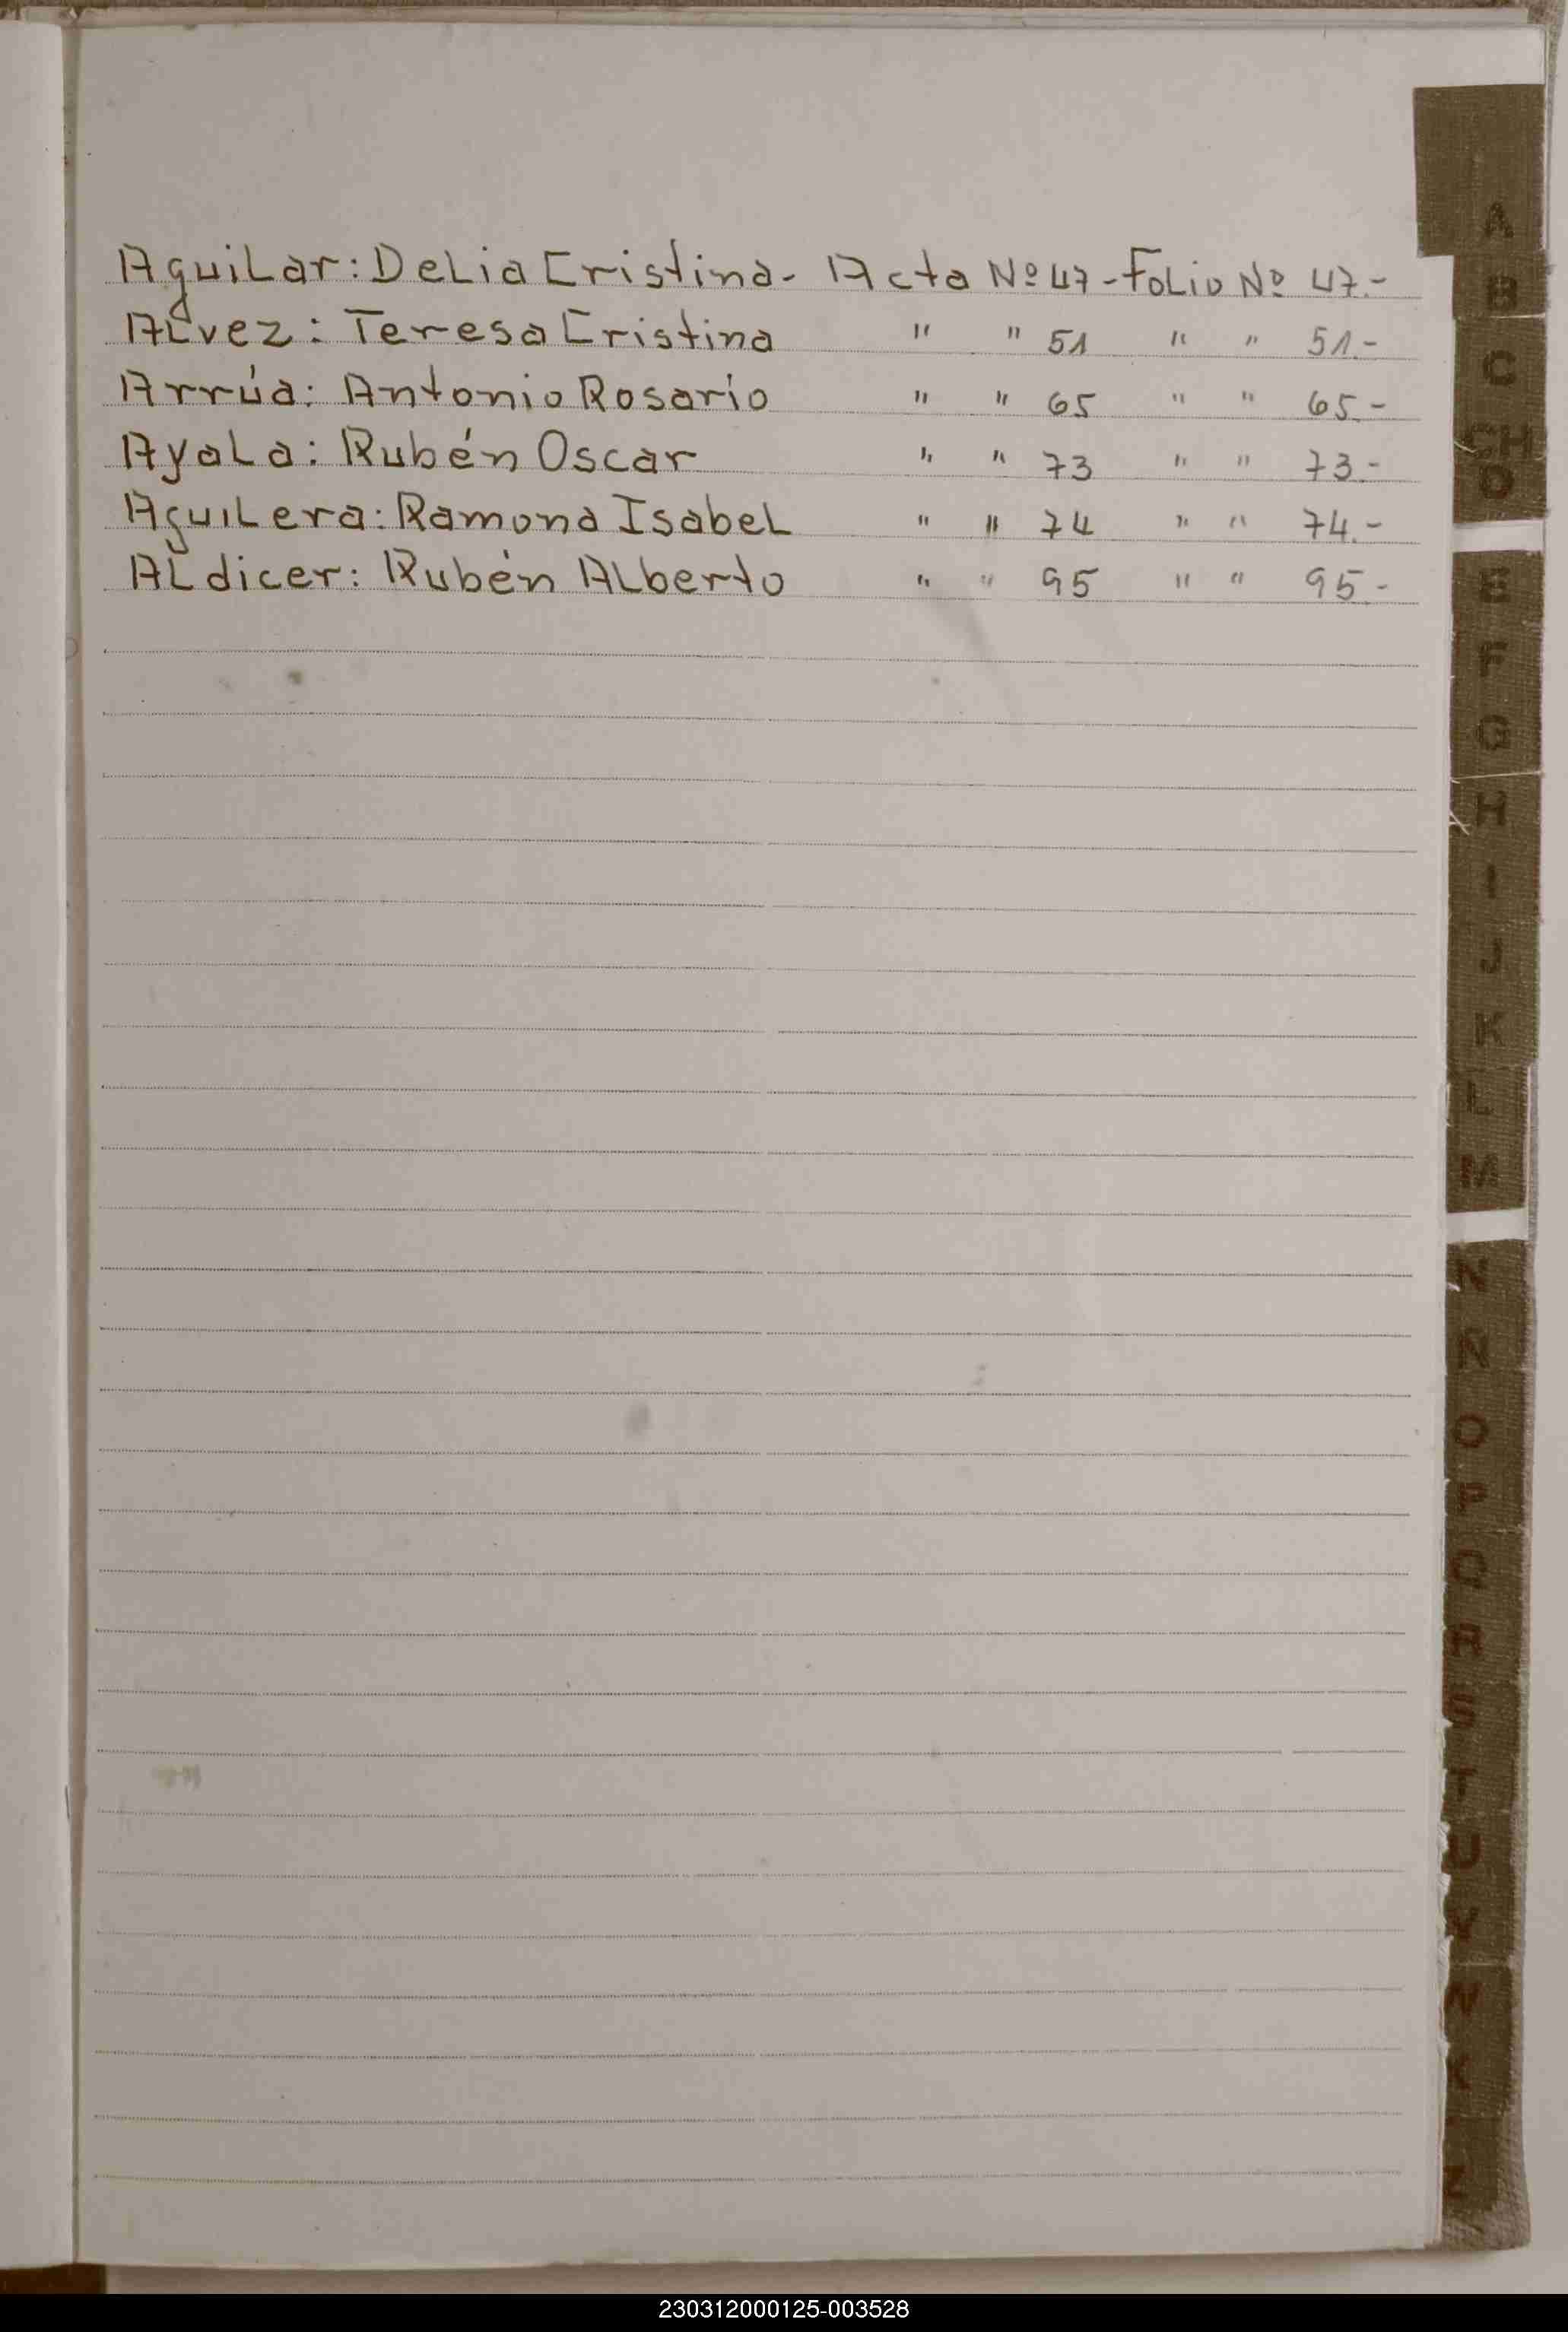 Aguilar: Delia Cristina- Acta Nº 47 - Folio Nº 47.-
Alvez: Teresa Cristina " " 51 " " 51.-
Arrúa: Antonio Rosario " " 65 " " 65.-
Ayala: Rubén Oscar " " 73 " " 73.-
Aguilera: Ramona Isabel " " 74 " " 74.-
Aldicer: Rubén Alberto " " 95 " " 95-
A
B
C
CH
D
E
F
G
H
I
J
K
L
M
N
O
P
Q
R
S
T
U
V
Z
230312000125-003528